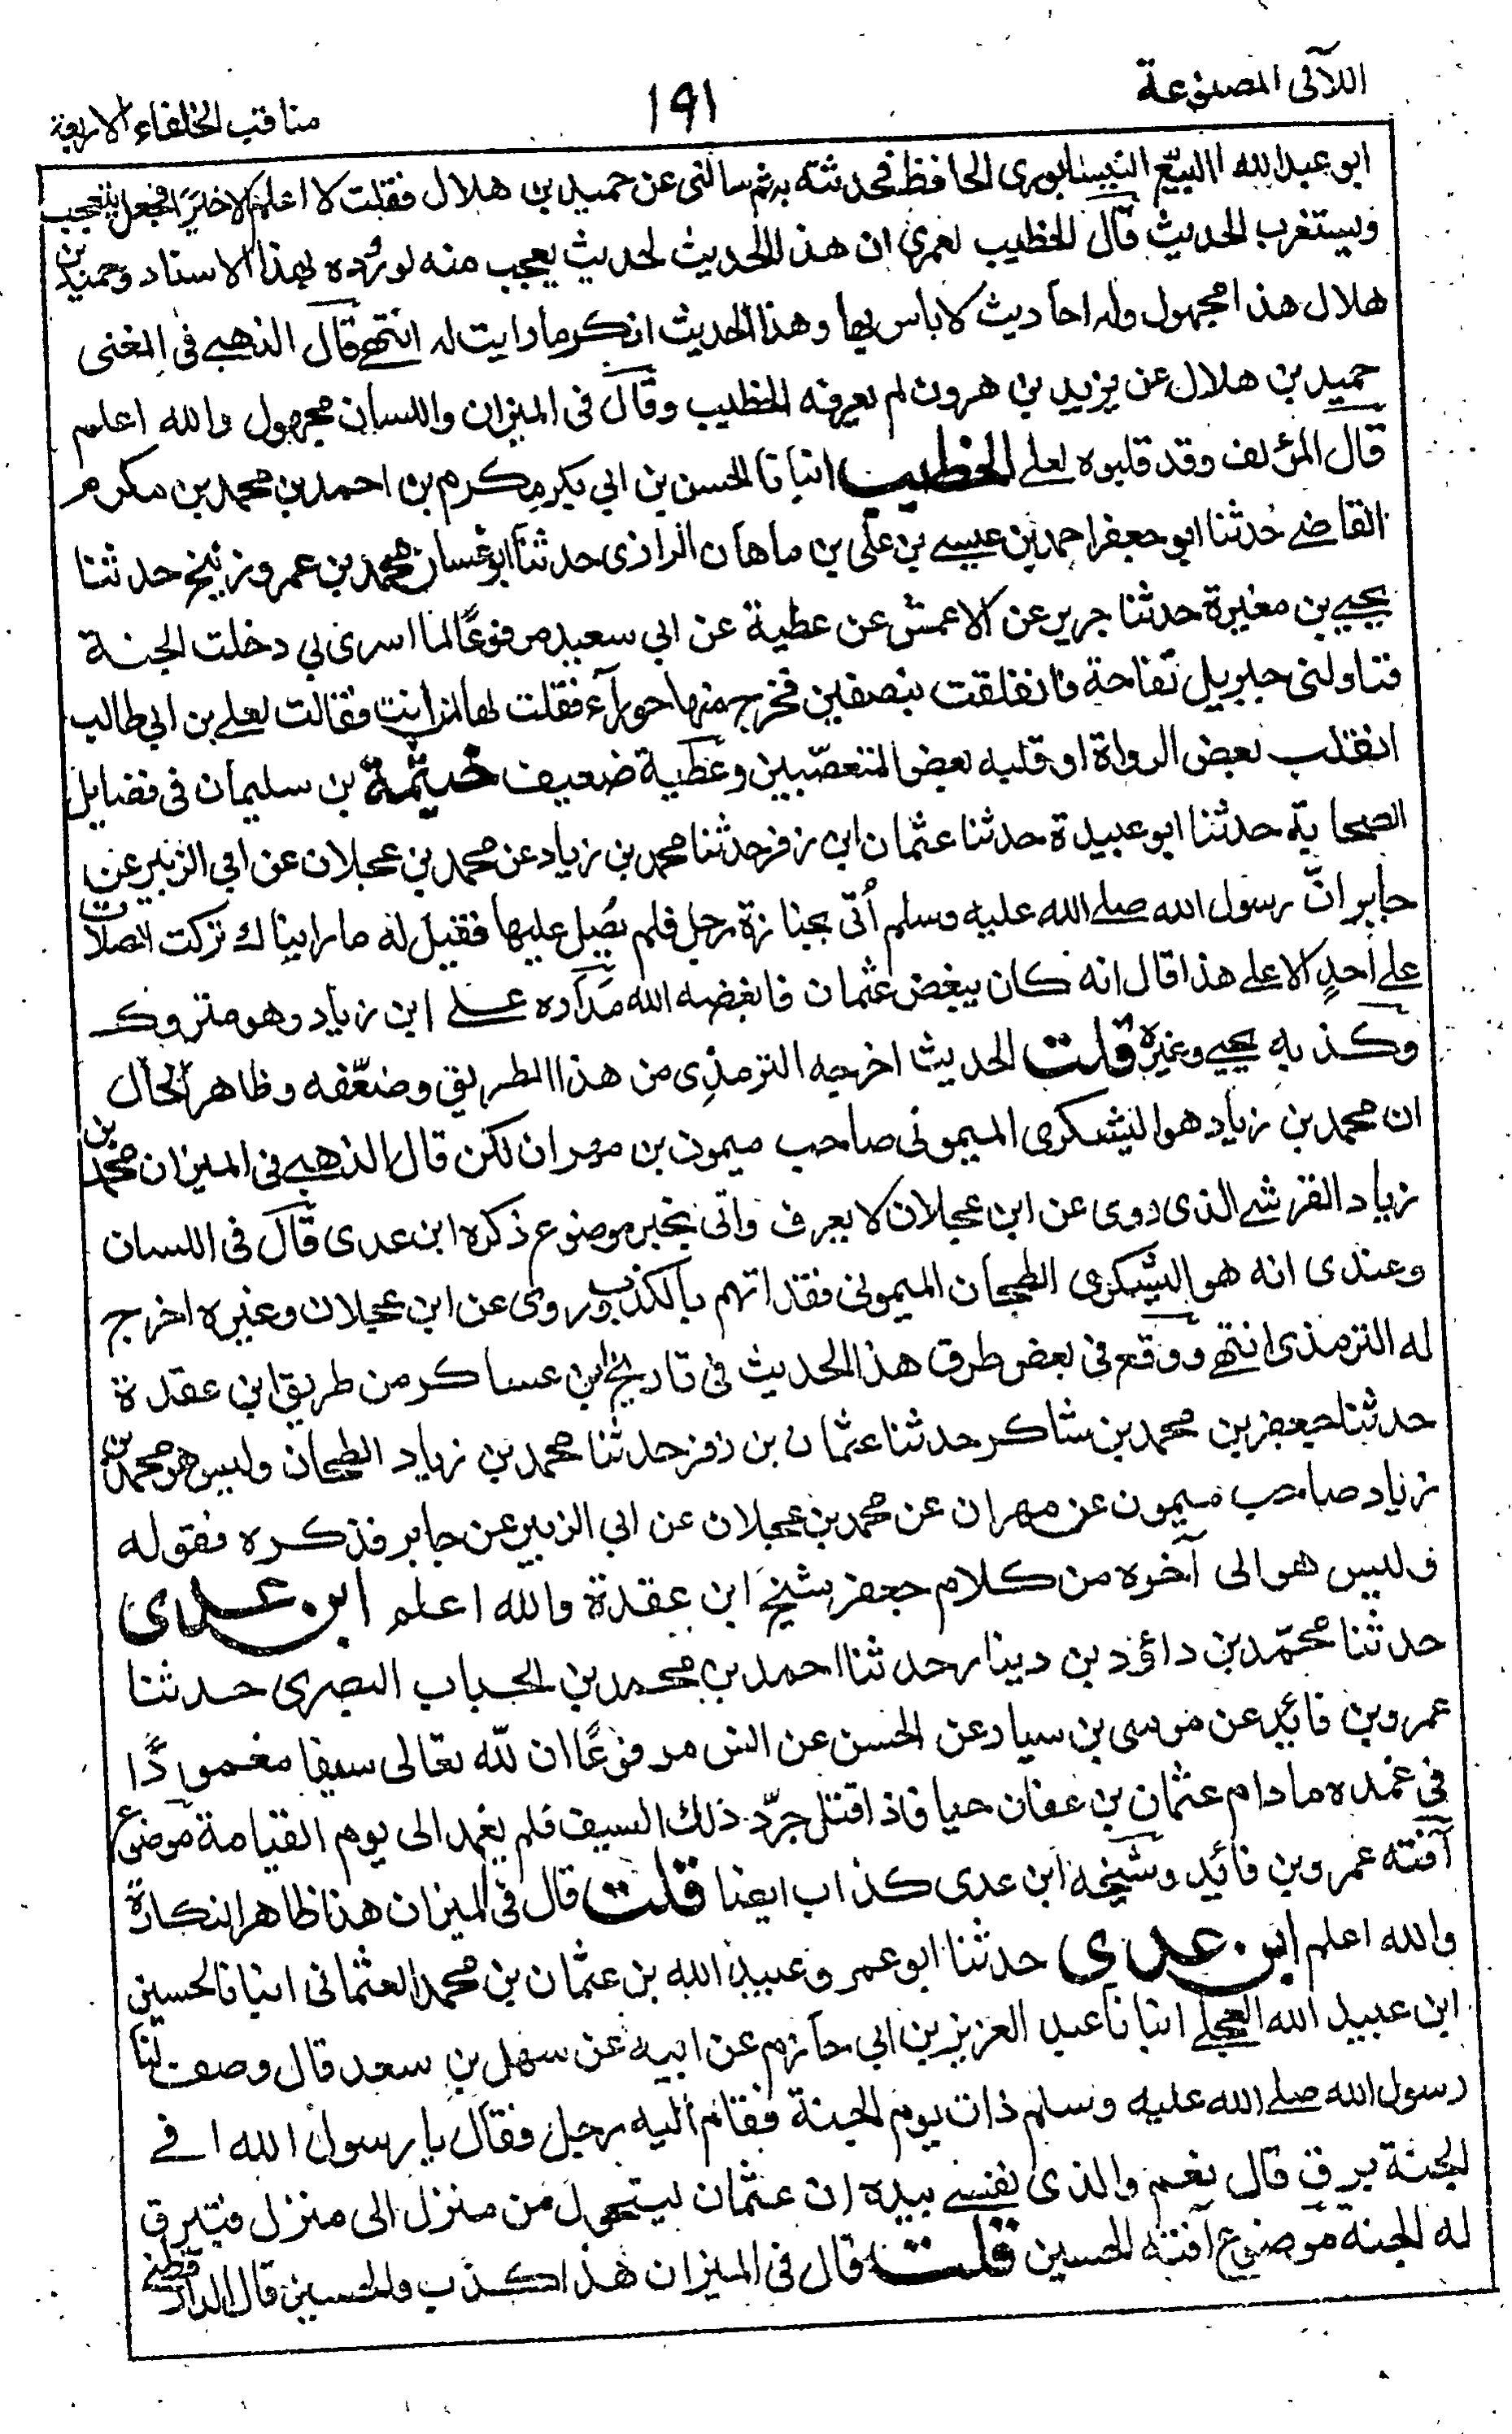 اللآلى المصنوعة
١٩١
مناقب الخلفاء الاربعة
ابو عبد الله البيّع النيسابورى الحافظ فحدثته به ثم سالنى عن حميد بن هلال فقلت لا اعلم الا خيرا فجعل يتعجب
ويستغرب الحديث قال الخطيب لعمرى ان هذا الحديث لحديث يعجب منه لورُده بهذا الاسناد وحميد بن
هلال هذا مجهول وله احاديث لا باس بها وهذا الحديث انكر ما رايت له انتهے قال الذهبے فى المغنى
حميد بن هلال عن يزيد بن هرون لم يعرفه الخطيب وقال فى الميزان واللسان مجهول والله اعلم
قال المؤلف وقد قلبوه لعلے الخطيب انبانا الحسن بن ابي بكر مكرم بن احمد بن محمد بن مكرم
القاضے حدثنا ابو جعفر احمد بن عيسے بن على بن ماهان الرازى حدثنا ابو غسان محمد بن عمرو زنيخ حدثنا
يحيے بن مغيرة حدثنا جرير عن الاعمش عن عطية عن ابي سعيد مرفوعًا لما اسرى بي دخلت الجنة
فناولنى جبريل تفاحة فانفلقت بنصفين فخرج منها حورآء فقلت لها لمن انت فقالت لعلے بن ابي طالب
انقلب بعض الرواة او قلبه بعض المتعصّبين وعطية ضعيف خيثمة بن سليمان فى فضايل
الصحابة حدثنا ابو عبيدة حدثنا عثمان ابن زفر حدثنا محمد بن زياد عن محمد بن عجلان عن ابي الزبير عن
جابر انّ رسول الله صلے الله عليه وسلم اُتى بجنازة رجل فلم يصل عليها فقيل له ما رايناك تركت الصلات
علے احدٍ الا علے هذا قال انه كان يبغض عثمان فابغضه الله مداره علے ابن زياد وهو متروك
وكذبه يحيے وغيره قلت الحديث اخرجه الترمذى من هذا الطريق وضعّفه وظاهر الحال
ان محمد بن زياد هو اليشكرى الميمونى صاحب ميمون بن مهران لكن قال الذهبے فى الميزان محمد بن
زياد القرشے الذى روى عن ابن عجلان لا يعرف واتى بخبر موضوع ذكره ابن عدى قال فى اللسان
وعندى انه هو اليشكرى الطحان الميمونى فقد اتهم بالكذب وروى عن ابن عجلان وغيره اخرج
له الترمذى انتهے ووقع فى بعض طرق هذا الحديث فى تاريخ ابن عساكر من طريق ابن عقدة
حدثنا جعفر بن محمد بن شاكر حدثنا عثمان بن زفر حدثنا محمد بن زياد الطحان وليس هو محمد بن
زياد صاحب ميمون عن مهران عن محمد بن عجلان عن ابي الزبير عن جابر فذكره فقوله
وليس هو الى آخره من كلام جعفر شيخ ابن عقدة والله اعلم ابن عدى
حدثنا محمّد بن داؤد بن دينار حدثنا احمد بن محمد بن الحباب البصرى حدثنا
عمرو بن فائد عن موسى بن سيار عن الحسن عن انس مرفوعًا ان لله تعالى سيفا مغمودًا
فى غمده ما دام عثمان بن عفان حيا فاذا قتل جرّد ذلك السيف فلم يغمد الى يوم القيامة موضوع
آفته عمرو بن فائد وشيخه ابن عدى كذاب ايضا قلت قال فى الميزان هذا ظاهر النكارة
والله اعلم ابن عدي حدثنا ابو عمرو عبيد الله بن عثمان بن محمد العثمانى انبانا الحسين
ابن عبيد الله العجلے انبانا عبد العزيز بن ابى حازم عن ابيه عن سهل بن سعد قال وصف لنا
رسول الله صلے الله عليه وسلم ذات يوم الجنة فقام اليه رجل فقال يا رسول الله ا فے
الجنة برق قال نعم والذى نفسے بيده ان عثمان ليتحول من منزل الى منزل فتبرق
له الجنة موضوع آفته الحسين قلت قال فى الميزان هذا كذب والحسين قال الدارقطنے